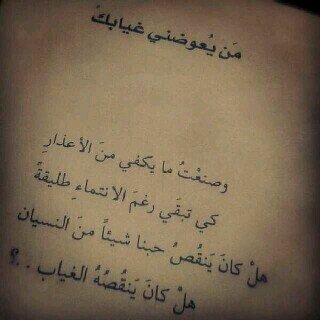 مَن يُعوضني غيابك
وصنعْتُ ما يكفي منَ الأعذارِ
كي تبقَي رغمَ الانتماءِ طليقةً
هلْ كانَ يَنقُصُ حبنا شيئاً منَ النسيان
هلْ كانَ يَنقُصُهُ الغياب . . ؟